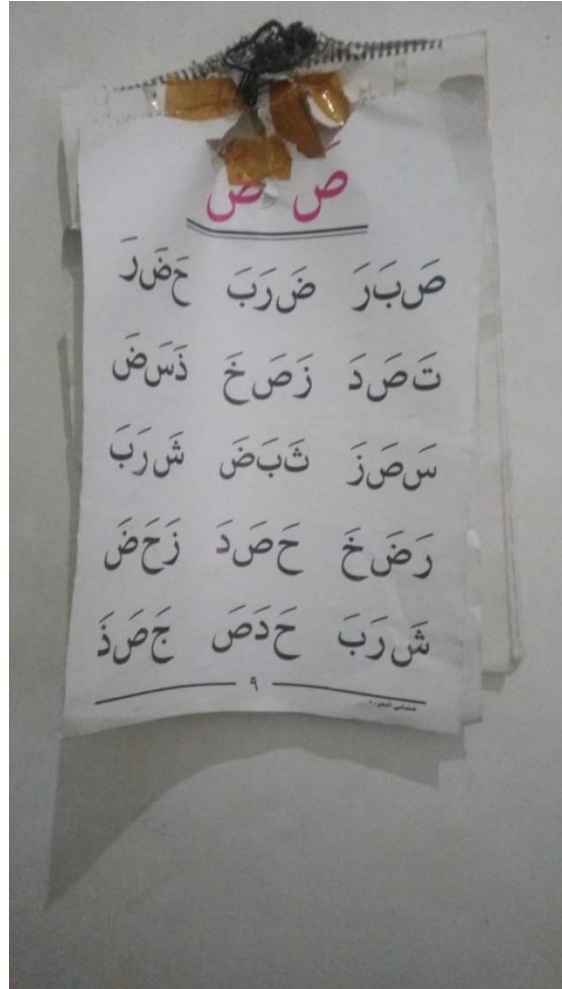 صَ ضَ
صَبَرَ ضَرَبَ حَضَرَ
تَصَدَ زَصَخَ ذَسَضَ
سَصَزَ ثَبَضَ شَرَبَ
رَضَخَ حَصَدَ زَحَضَ
شَرَبَ حَدَصَ جَصَذَ
٩